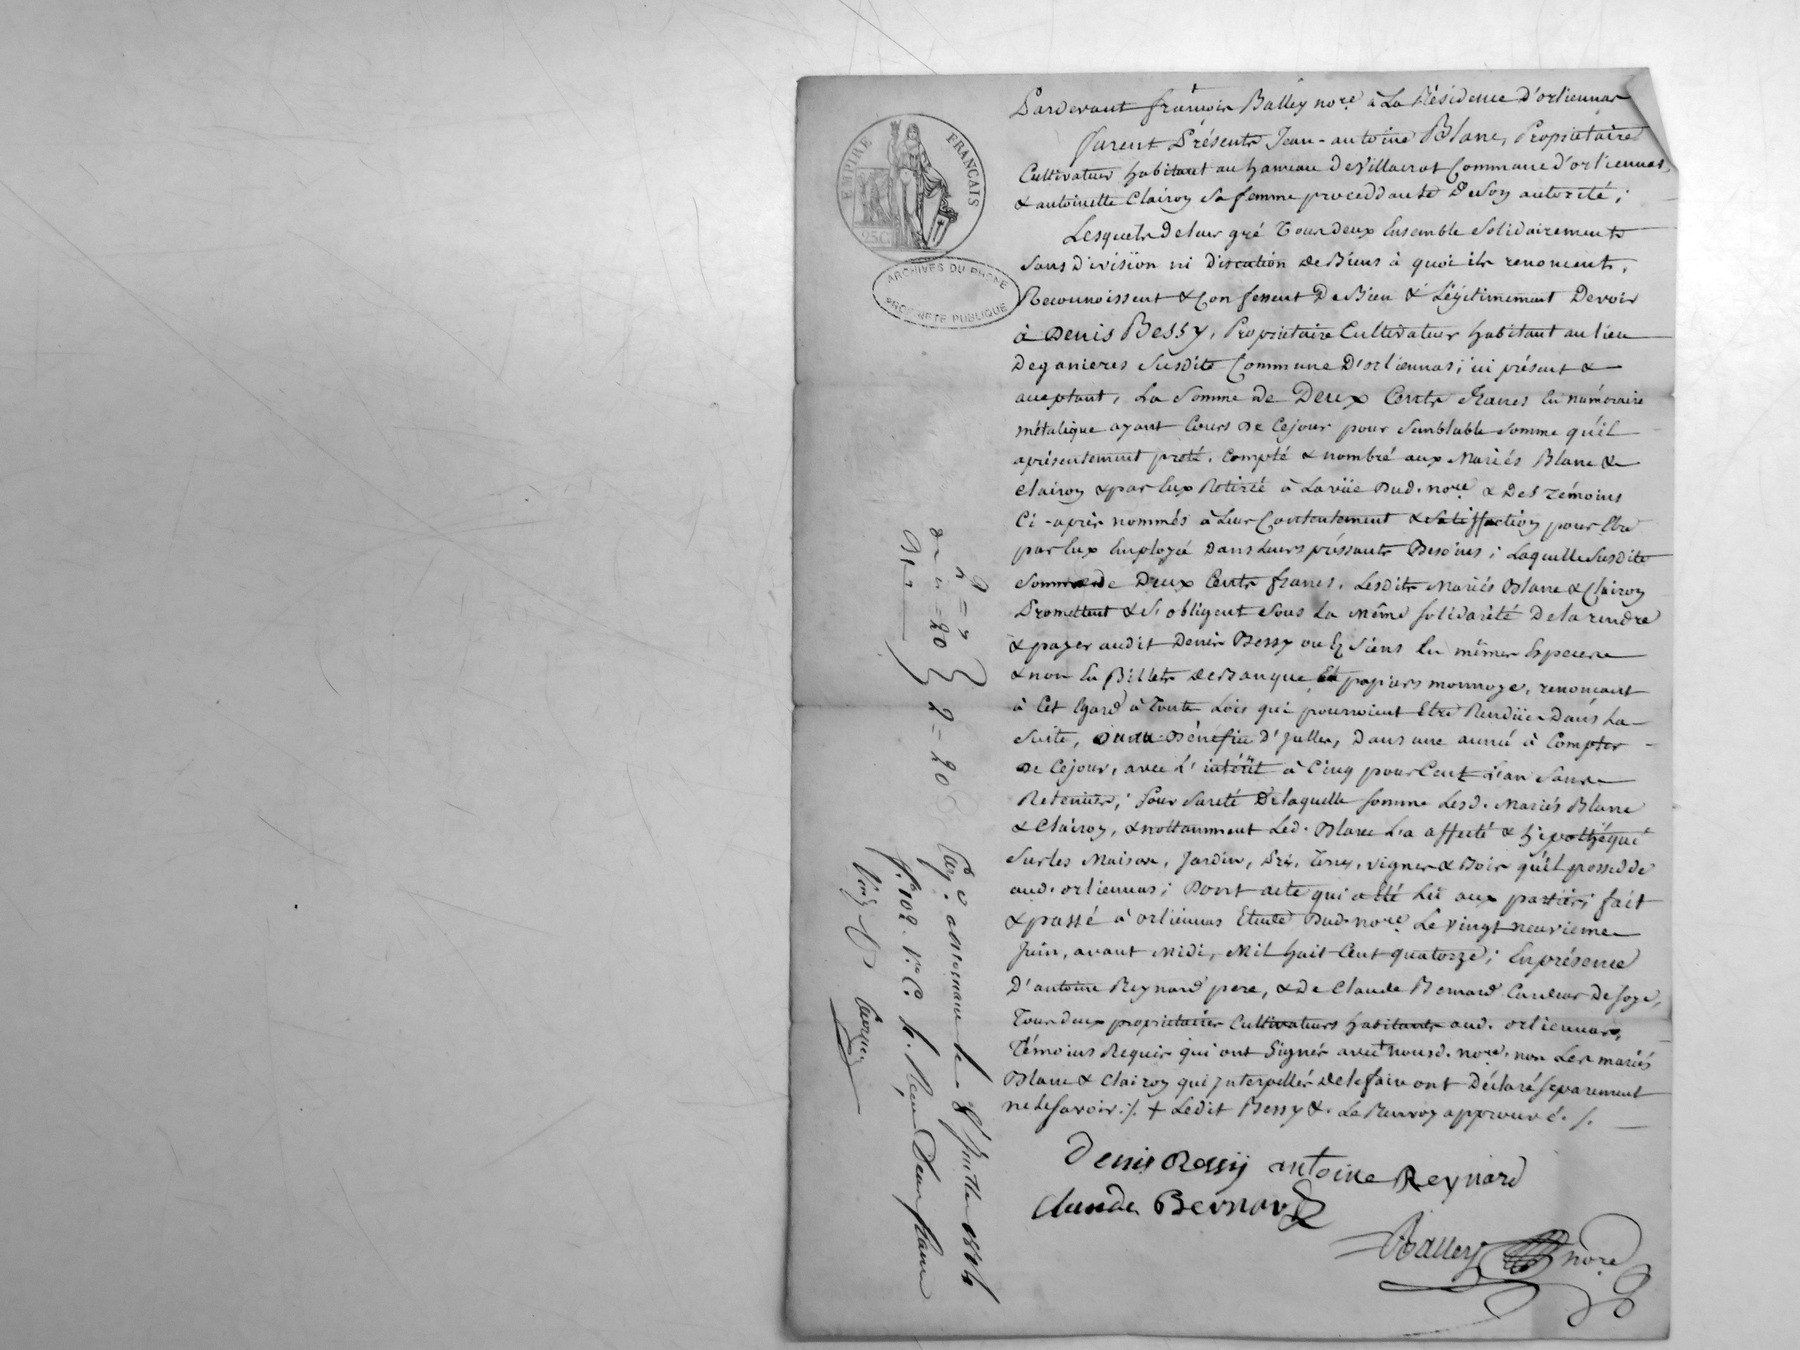 EMPIRE FRANÇAIS
25C
ARCHIVES DU RHÔNE
PROPRIÉTÉ PUBLIQUE
Pardevant françois Balley nore. à La Résidence d'orliennas
furent Présents Jean-antoine Blanc, Propriétaire
Cultivateur habitant au hameau de Villacrat Commune d'orliennas,
& antoinette Clairoy Sa femme proceddante de Son autorité;
Lesquels de leur gré Tous deux Ensemble Solidairements
Sans Division ni Discution de Biens à quoi ils renoncent,
Reconnoissent & Confessent De Bien & Légitimement Devoir
à Denis Bessy, Propriétaire Cultivateur habitant au lieu
De ganieres Susdite Commune D'orliennas; ici présent &
acceptant, La Somme de Deux Cents francs En numéraire
métalique ayant Cours de Cejour pour Semblable Somme qu'il
a présentement preté, compté & nombré aux Mariés Blanc &
Clairoy & par Eux Retirée à La vüe Dud. nore & Des Témoins
Ci-après nommés à Leur Contentement & Satisfaction pour Etre
par Eux Employée Dans Leurs préssants Besoins; Laquelle Susdite
Somme de Deux Cents francs, Lesdits Mariés Blanc & Clairoy
Promettent & S'obligent Sous La même solidarité De la rendre
& payer audit Denis Bessy ou Es Siens En mêmes Especes
& non En Billets de Banque Et papiers monnoye, renoncant
à Cet Egard à Toute Lois qui pourroient Etre Rendües Dans La
Suite, Du au Bénéfice D'Jcelles, Dans une année à Compter
de Cejour, avec L'intérêt à Cinq pour Cent L'an Sans
Retenües; pour Sureté De laquelle somme Lesd. Mariés Blanc
& Clairoy, & nottamment Led. Blanc L'a affecté & hipothéqué
Sur les Maison, Jardin, Pré, Terres, vignes & Bois qu'il possedde
aud. orliennas; Dont acte qui a Eté Lû aux parties; fait
& passé à orliennas Etude Dud. nore. Le vingt neuvieme
Juin, avant Midi, Mil huit Cent quatorze; En présence
D'antoine Reynard pere, & De Claude Bernard Cardeur De soye,
Tous deux propriétaires Cultivateurs habitants aud. orliennas,
Témoins Requis qui ont Signés avec + nousd. nore. non Les mariés
Blanc & Clairoy qui Interpellés de le faire ont Déclaré séparement
ne le savoir ./. + Ledit Bessy &. Le Renvoy approuvé ./.
Denis Bessy antoine Reynard
Claude Bernard
Balley nore
2 = 20
8 juillet 1814
fo. 102. Vo. C.